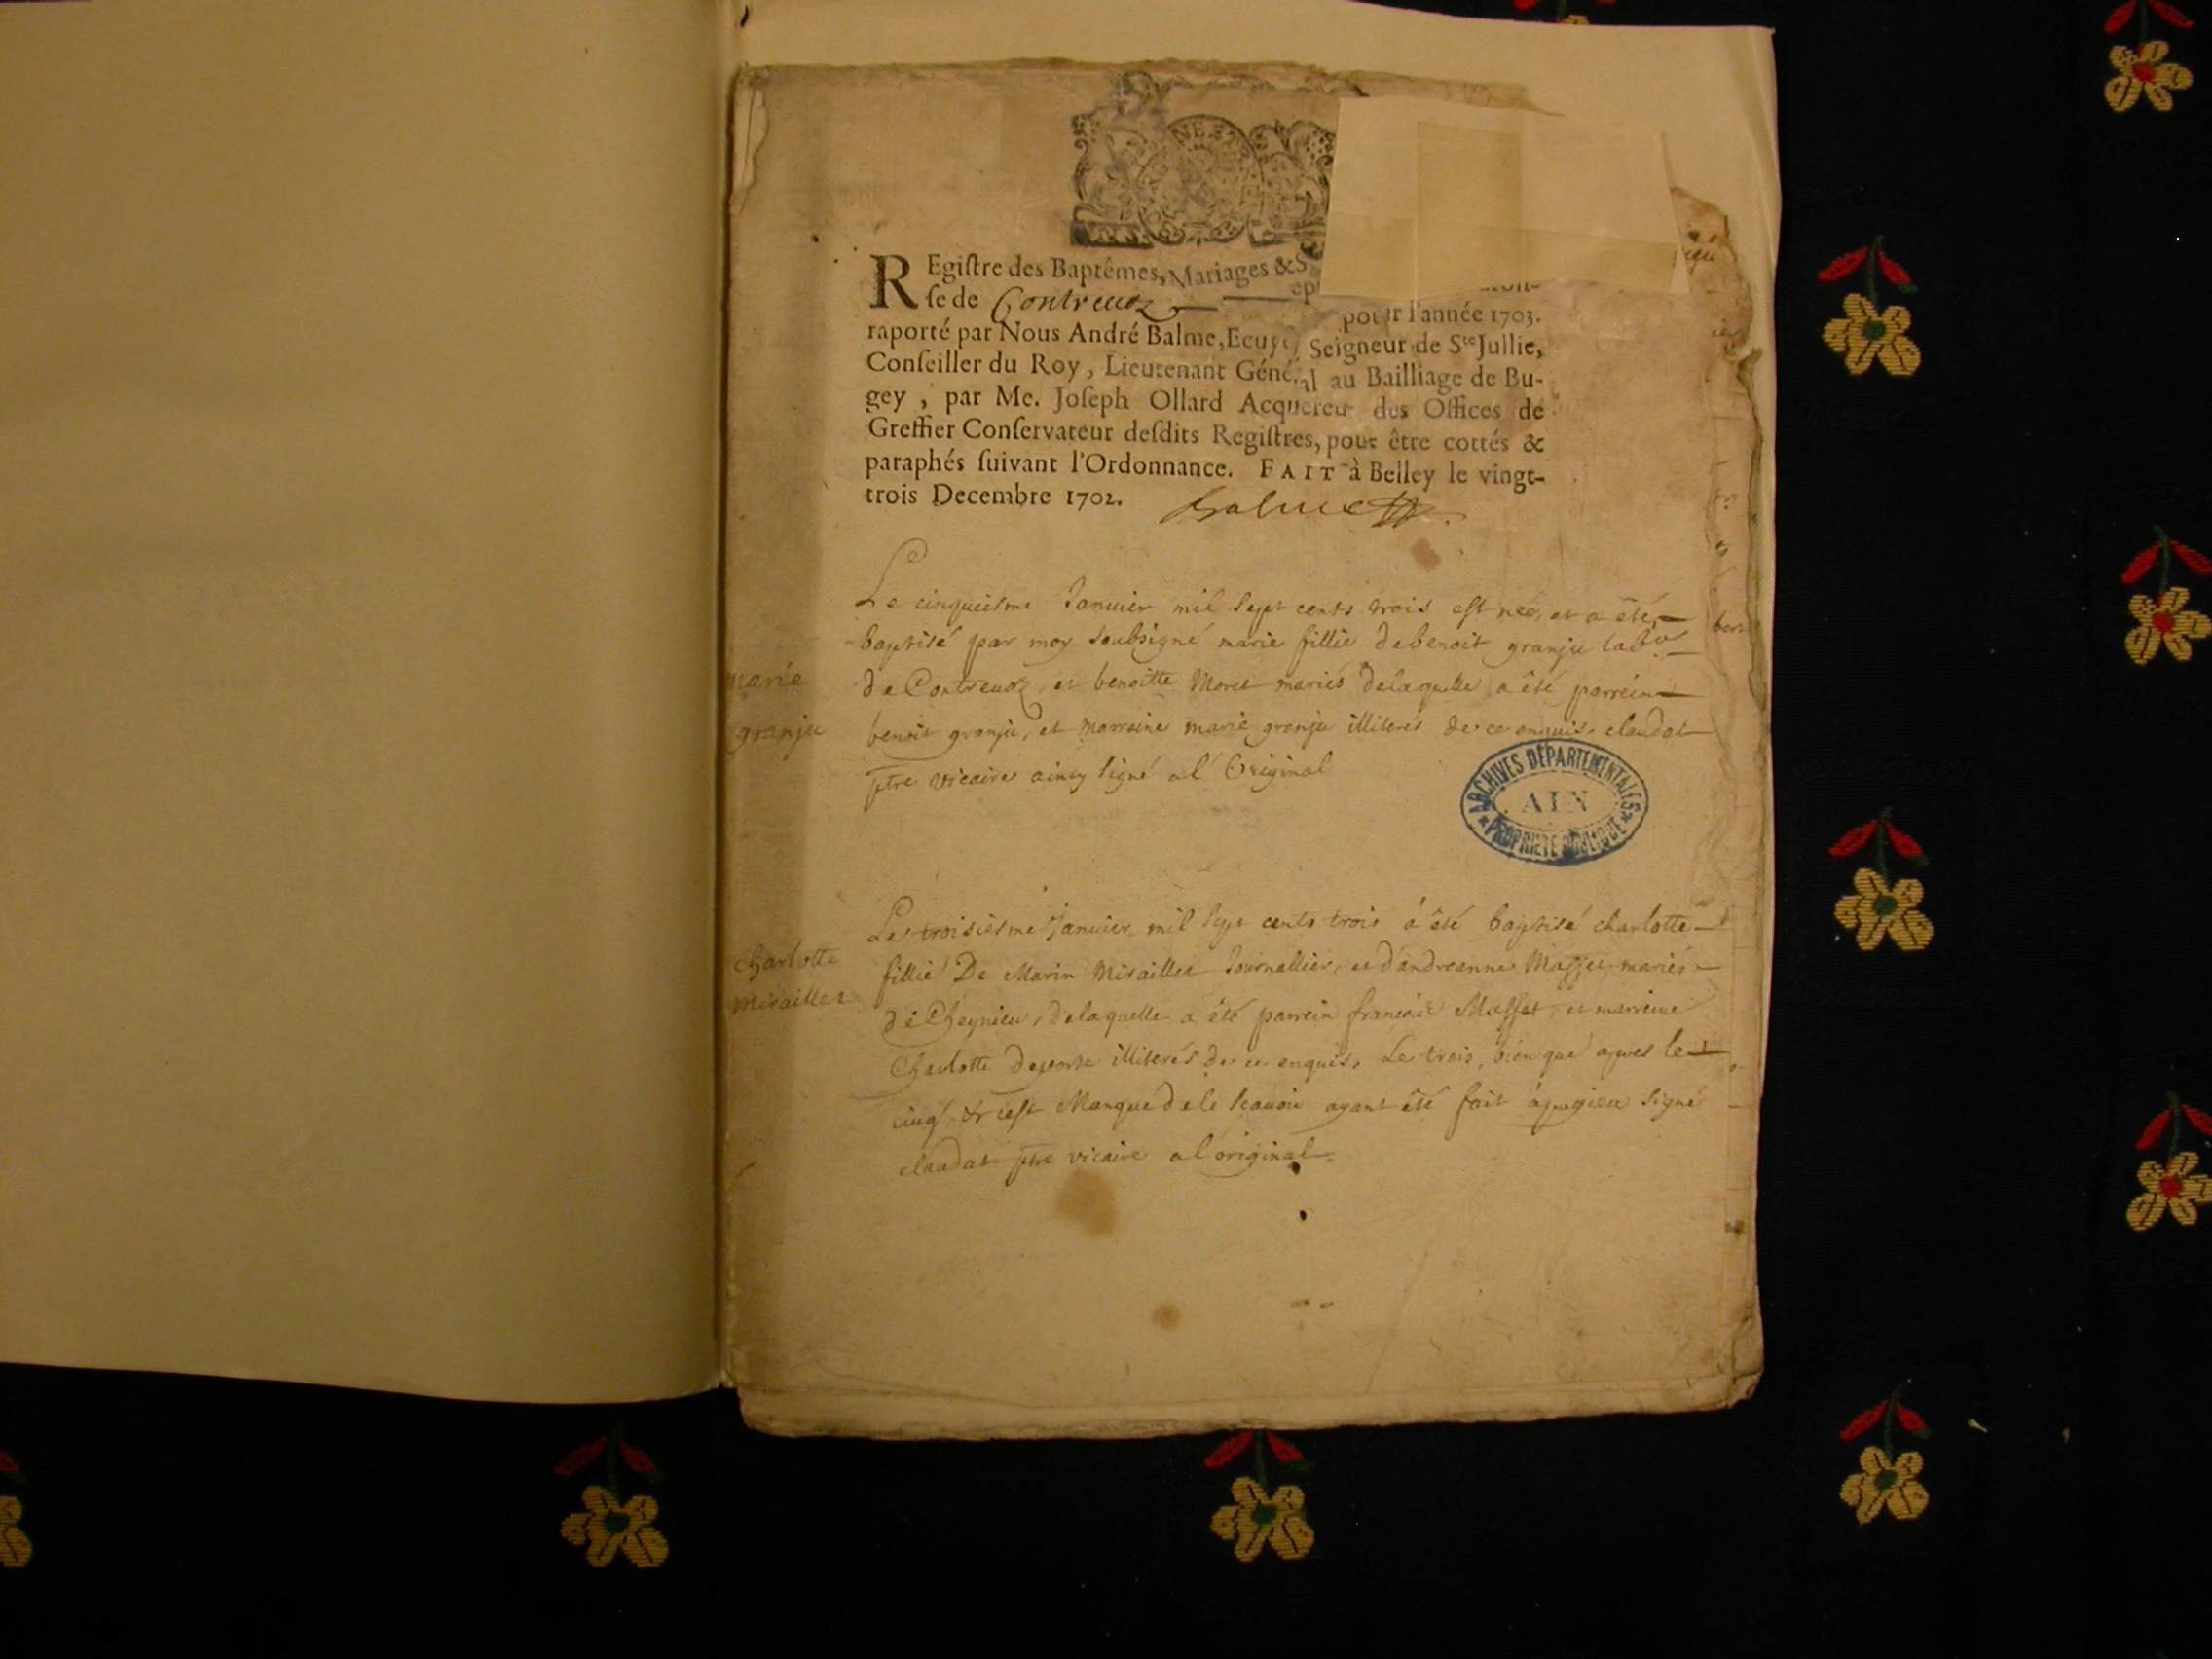 REgiſtre des Baptêmes, Mariages & S
ſe de Contreuoz pour l'année 1703.
raporté par Nous André Balme, Ecuye Seigneur de Ste Jullie,
Conſeiller du Roy, Lieutenant Général au Bailliage de Bu-
gey, par Me. Joſeph Ollard Acquereur des Offices de
Greffier Conſervateur deſdits Regiſtres, pour être cottés &
paraphés ſuivant l'Ordonnance. FAIT à Belley le vingt-
trois Decembre 1702. Balme
Le cinquiesme Januier mil sept cents trois est née, et a été
baptisé par moy soubsigné marie fillie de benoit granju labr
marie
de Contreuoz, et benoitte Moret mariés delaquelle a été parrein
granju
benoit granju, et marreine marie granju illiterés de ce enquis, claudat
ptre vicaire ainsy signé a l'Original
ARCHIVES DÉPARTEMENTALES
AIN
PROPRIÉTÉ PUBLIQUE
Le troisiesme Januier mil sept cents trois a été baptisé charlotte
charlotte
fillie De Marin Miraillet Journallier, et dandreanne Masset mariés
miraillet
de Cheynieu, delaquelle a été parrein françois Masset, et marreine
Charlotte deporte illiterés de ce enquis, Le trois, bien que apres le
cinq, c'est Manque de le scauoir ayant été fait a signé
claudat ptre vicaire a l'original